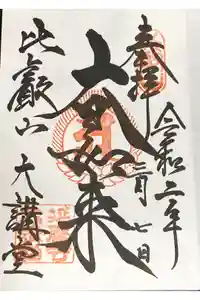 奉拝
令和二年
二月七日
大日如来
比叡山
大講堂